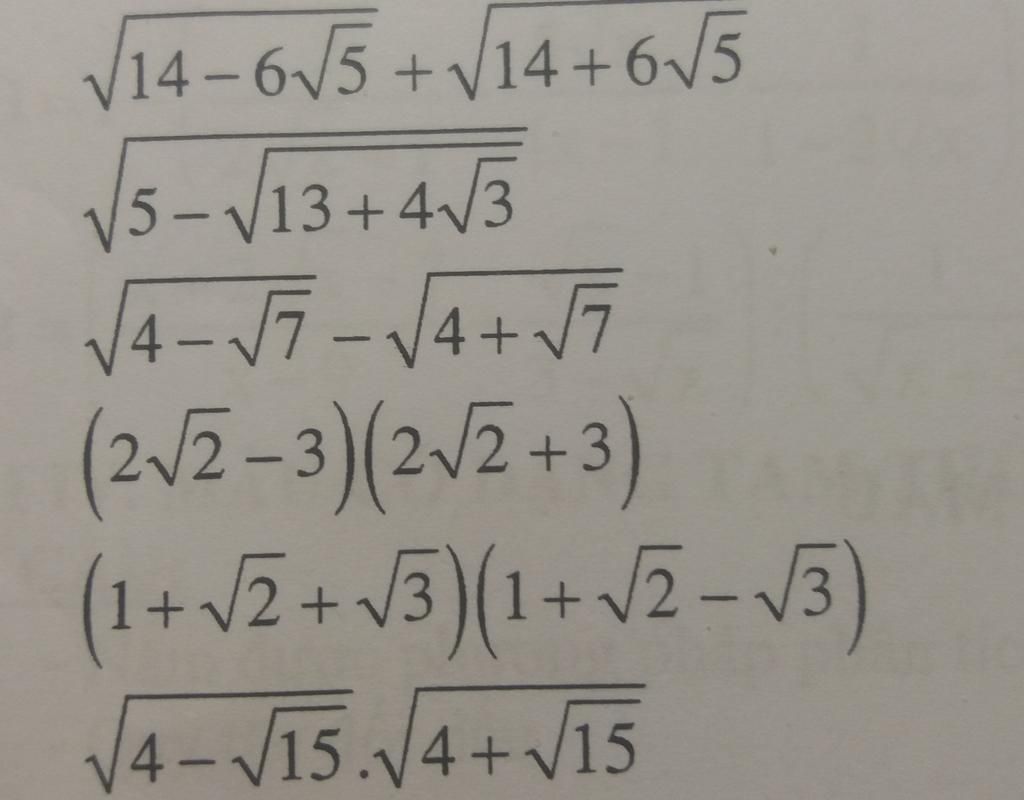 √(14 − 6√5) + √(14 + 6√5)
√(5 − √(13 + 4√3))
√(4 − √7) − √(4 + √7)
(2√2 − 3)(2√2 + 3)
(1 + √2 + √3)(1 + √2 − √3)
√(4 − √15) . √(4 + √15)